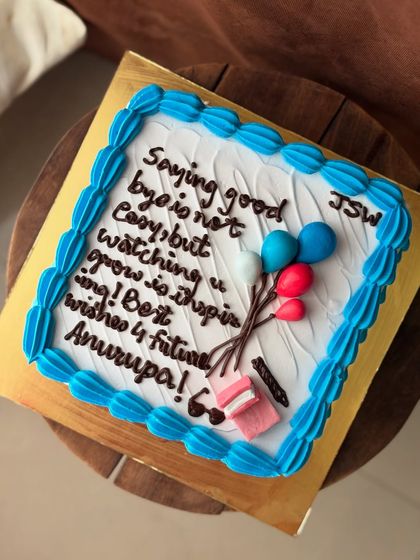 JSW
Saying good
bye is not
easy, but
watching u
grow is inspir
ing! Best
wishes 4 future
Anurupa!